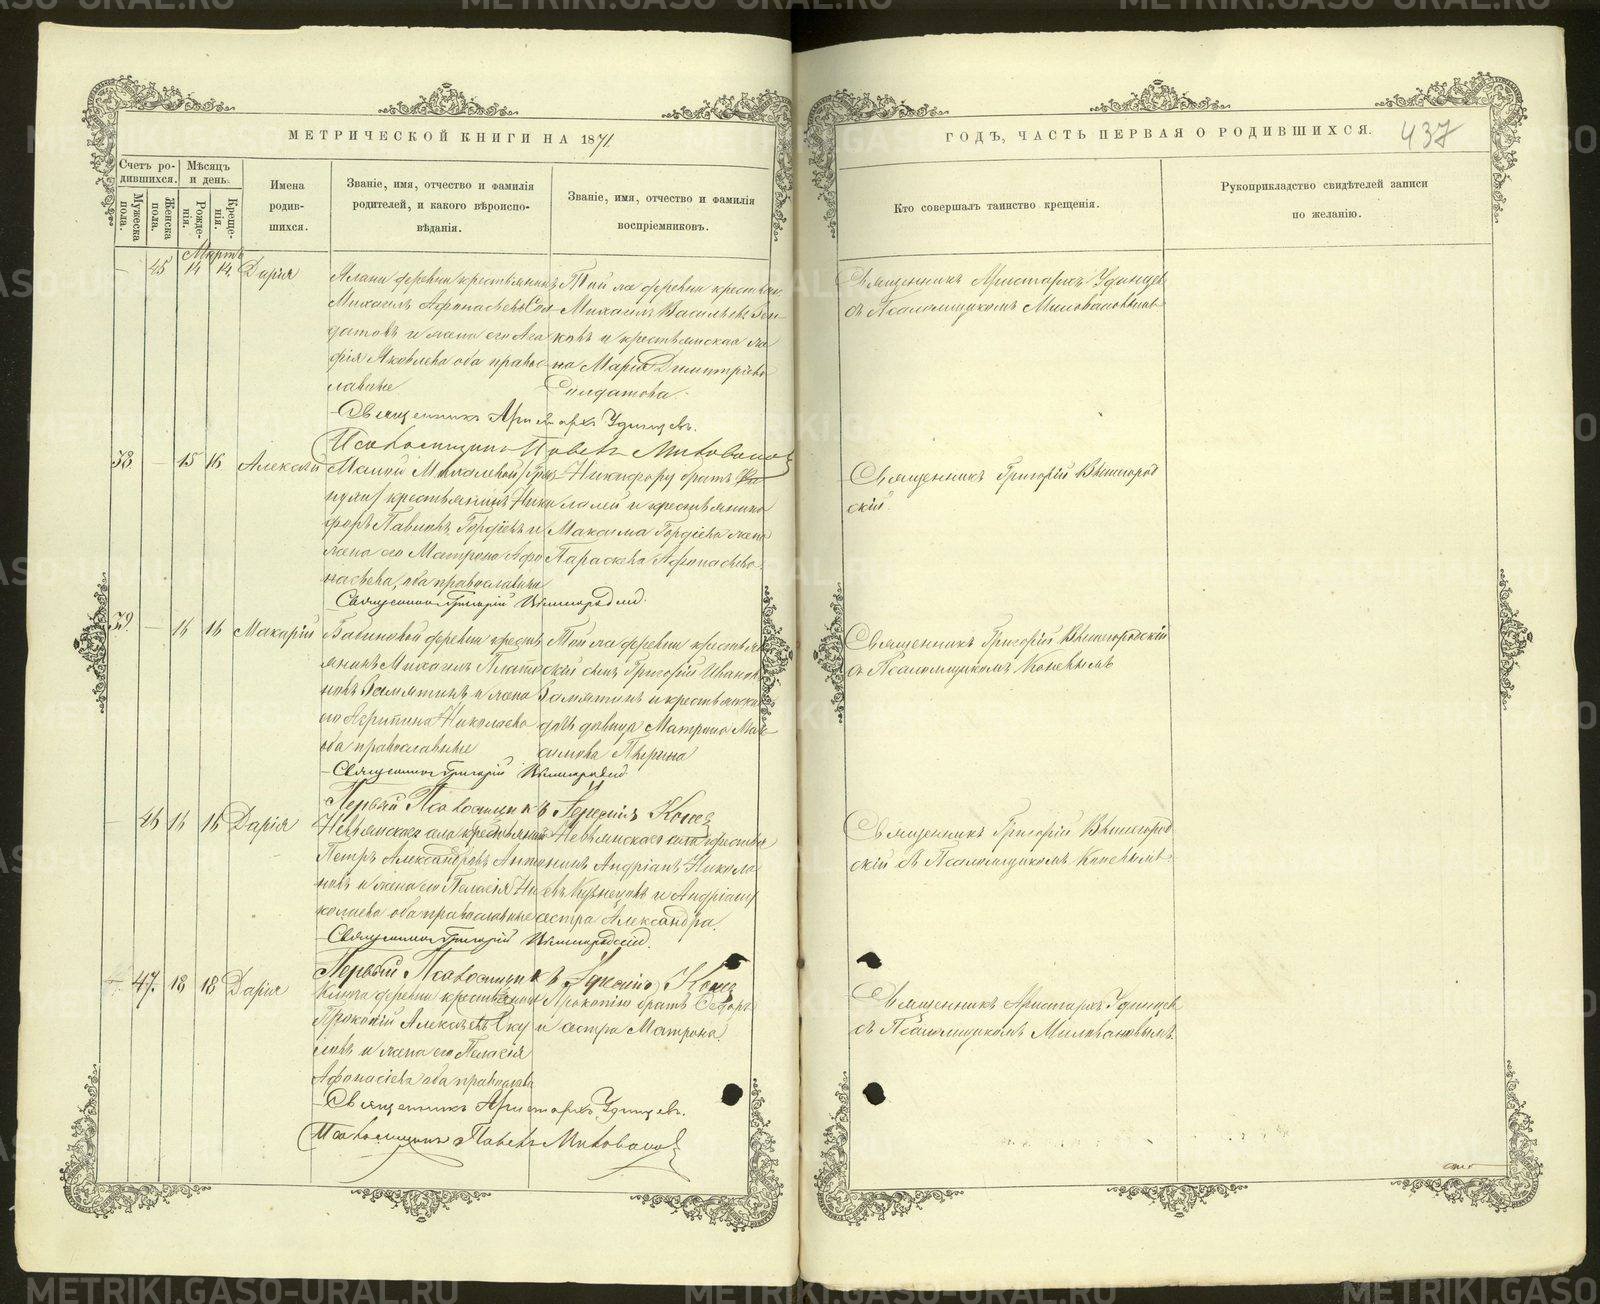 МЕТРИЧЕСКОЙ КНИГИ НА 1871
ГОДЪ, ЧАСТЬ ПЕРВАЯ О РОДИВШИХСЯ.
437
Счетъ ро-
дившихся.
Мужеска
пола.
Женска
пола.
Мѣсяцъ
и день.
Рожде-
нія.
Креще-
нія.
Имена
родив-
шихся.
Званіе, имя, отчество и фамилія
родителей, и какого вѣроиспо-
вѣданія.
Званіе, имя, отчество и фамилія
воспріемниковъ.
Кто совершалъ таинство крещенія.
Рукоприкладство свидѣтелей записи
по желанію.
Мартъ
45 14 14 Дарія
деревни крестьянинъ
Михаилъ Афонасьевъ Сол-
датовъ и жена его Ага
фія Яковлева оба правос
лавные
Той же деревни крестьян
Михаилъ Васильевъ
и крестьянская же
на Марія Димитріева
Солдатова.
Священникъ Аристархъ Удинцевъ.
Псаломщикъ Павелъ Миловановъ
Священникъ Аристархъ Удинцев
съ Псаломщикомъ Миловановымъ
38 15 16 Алексѣй
крестьянинъ Ники
форъ Павловъ Гордѣевъ и
жена его Матрона Афо
насьева, оба православные
Никифору братъ
и крестьянина
Максима Гордѣева жена
Параскева Афонасьева.
Священникъ Григорій Вышегородскій.
Священникъ Григорій Вышегород
скій.
39. 16 16 Макарій
Бабиновой деревни кресть
янинъ Михаилъ
Замятинъ и жена
его Агрипина Николаева
оба православные
Той же деревни крестьян
скій сынъ Григорій Иванов
Замятинъ и крестьянская
дочь дѣвица Матрона Мак
симова
Священникъ Григорій Вышегородскій
Первый Псаломщикъ Коневъ
Священникъ Григорій Вышегородскій
съ Псаломщикомъ Коневымъ
46 16 16 Дарія
Невьянскаго села крестьянинъ
Петръ Александровъ Анто
новъ и жена его Пелагія Ни
колаева оба православные
Невьянскаго села крестья
нинъ Андріанъ Никола
евъ Кузнецовъ и Андріану
сестра Александра.
Священникъ Григорій Вышегородскій.
Первый Псаломщикъ Коневъ
Священникъ Григорій Вышегород
скій съ Псаломщикомъ Коневымъ
47. 18 18 Дарія
Ключа деревни крестьянинъ
Прокопій Алексѣевъ
и жена его Пелагія
Афонасіева оба православ
Прокопію братъ Ѳедоръ
и сестра Матрона.
Священникъ Аристархъ Удинцевъ.
Псаломщикъ Павелъ Миловановъ
Священникъ Аристархъ Удинцев
съ Псаломщикомъ Миловановымъ.
METRIKI.GASO-URAL.RU